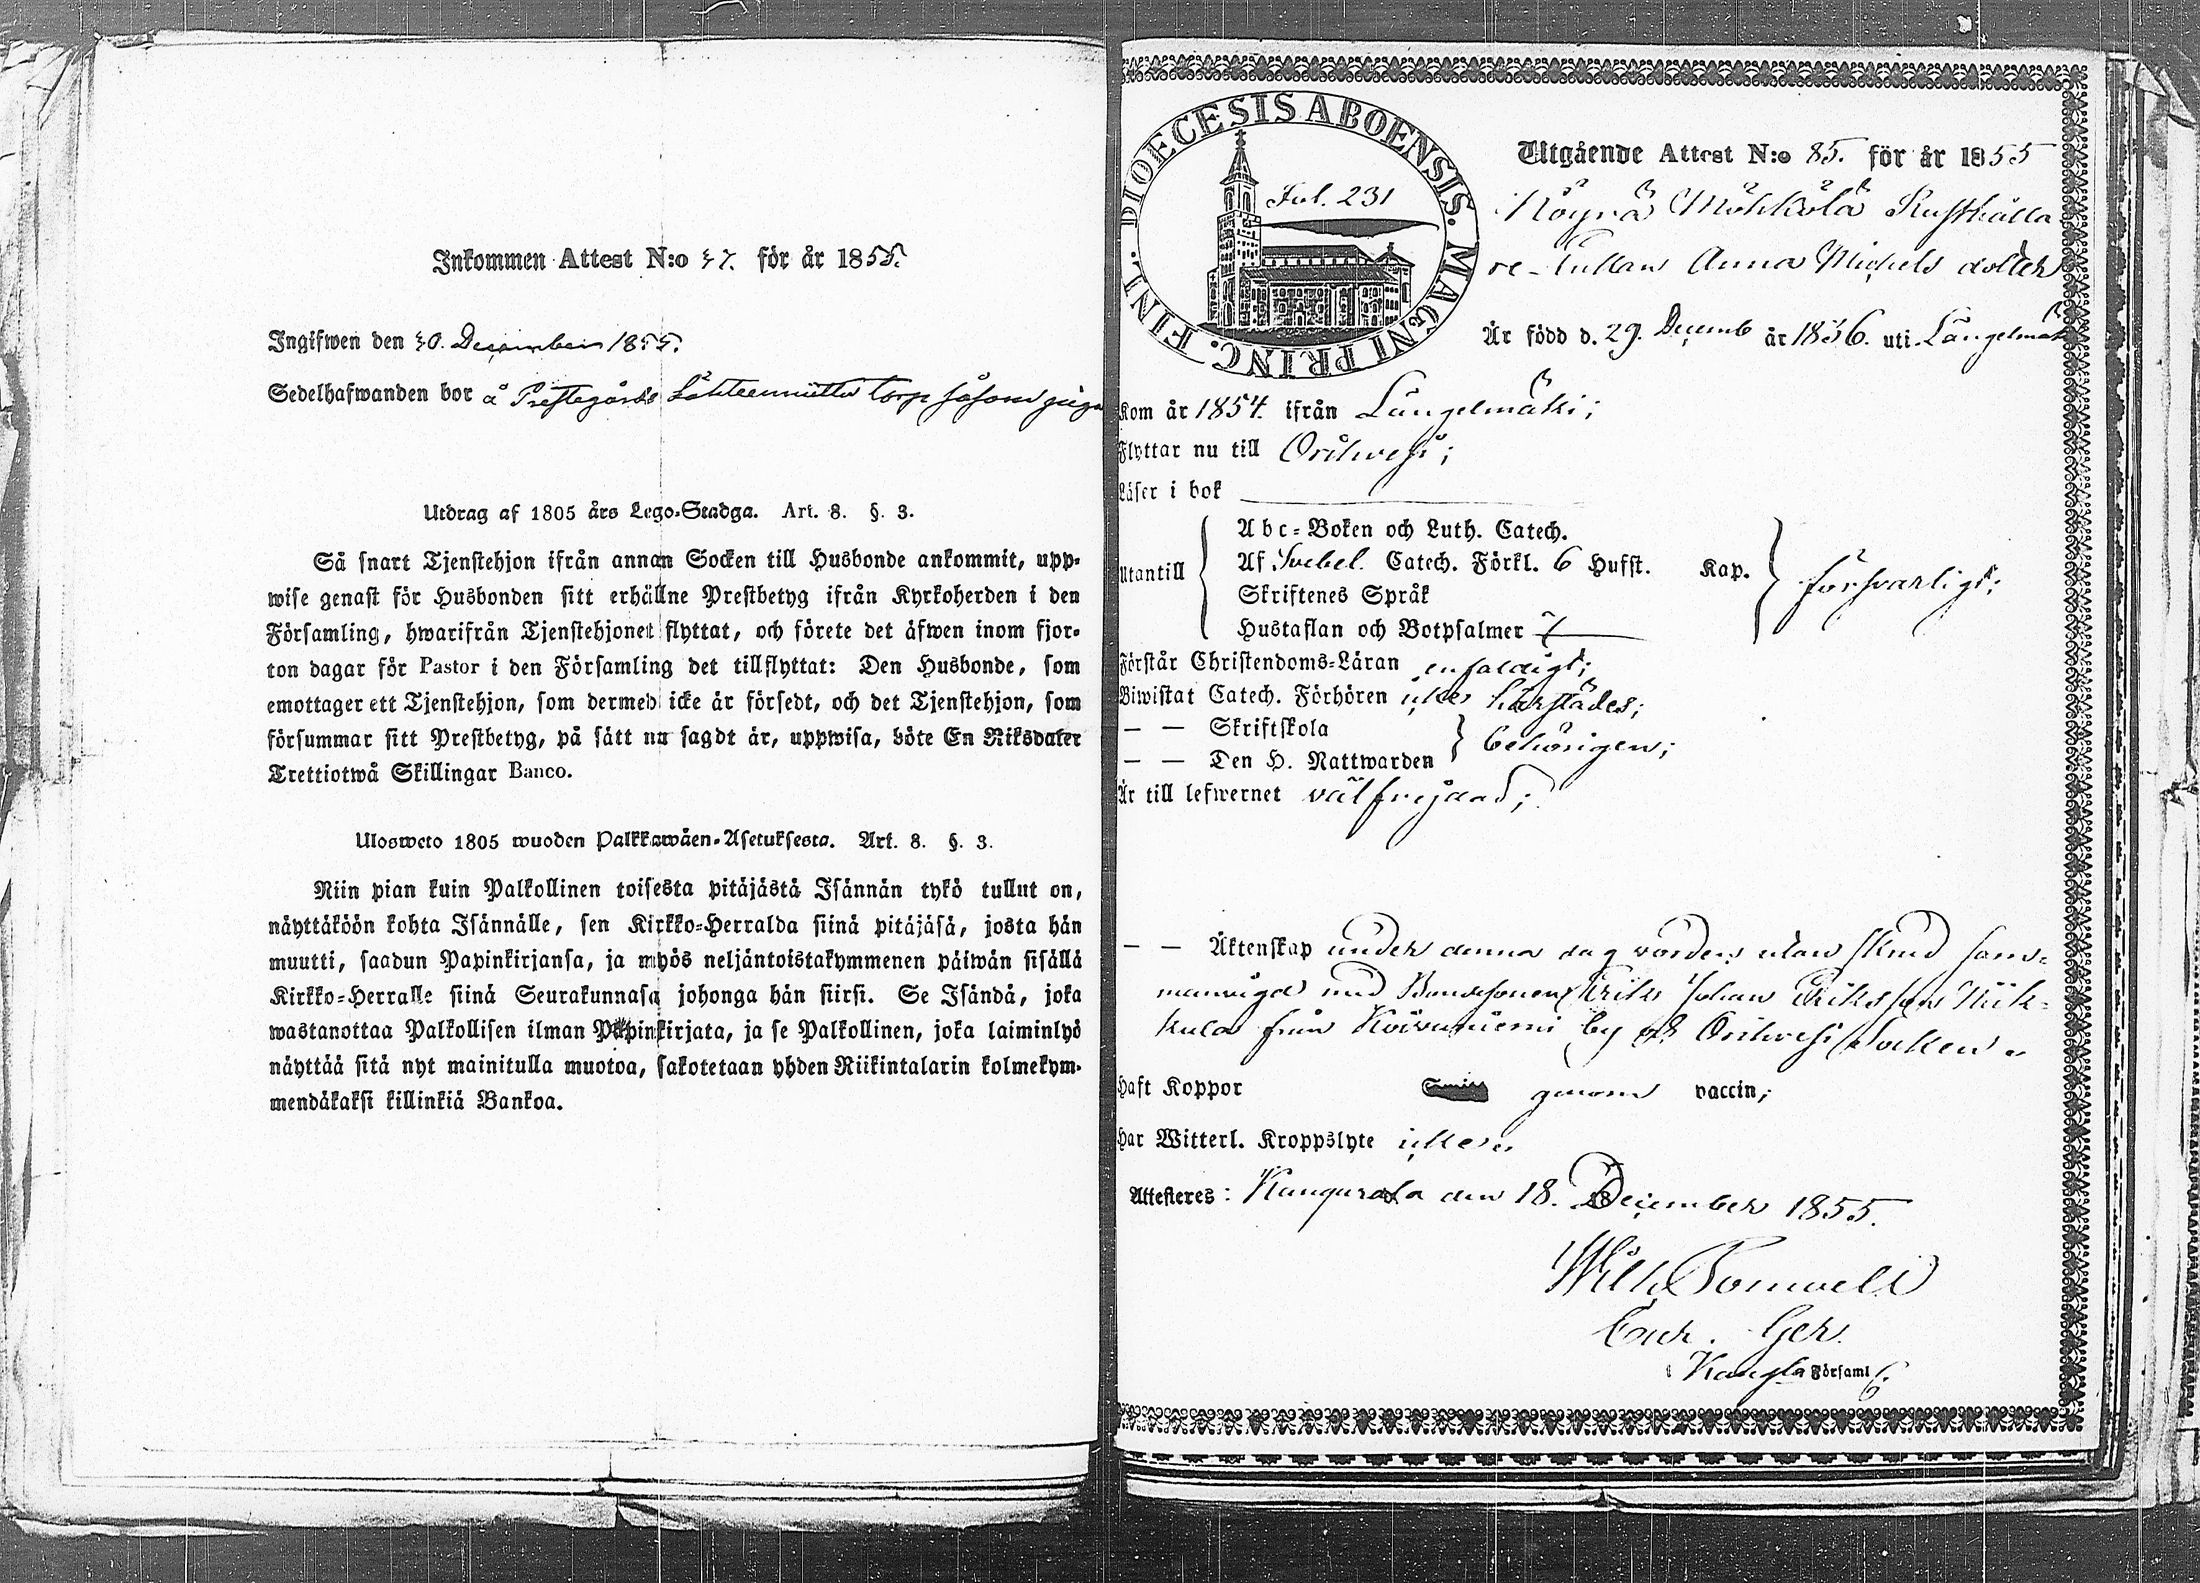 Inkommen Attest N:o 37. för år 1855.
Ingifwen den 30. December 1855.
Sedelhafwanden bor å Prestegårds Lähteenmitta torp såsom piga
Utdrag af 1805 års Lego-Stadga. Art. 8. §. 3.
Så snart Tjenstehjon ifrån annan Socken till Husbonde ankommit, upp-
wise genast för Husbonden sitt erhållne Prestbetyg ifrån Kyrkoherden i den
Församling, hwarifrån Tjenstehjonet flyttat, och förete det äfwen inom fjor-
ton dagar för Pastor i den Församling det tillflyttat: Den Husbonde, som
emottager ett Tjenstehjon, som dermed icke är försedt, och det Tjenstehjon, som
försummar sitt Prestbetyg, på sätt nu sagdt är, uppwisa, böte En Riksdaler
Trettiotwå Skillingar Banco.
Ulosweto 1805 wuoden Palkkawäen-Asetuksesta. Art. 8. §. 3.
Niin pian kuin Palkollinen toisesta pitäjästä Isännän tykö tullut on,
näyttäköön kohta Isännälle, sen Kirkko-Herralda siinä pitäjäsä, josta hän
muutti, saadun Papinkirjansa, ja myös neljäntoistakymmenen päiwän sisällä
Kirkko-Herralle siinä Seurakunnasa johonga hän siirsi. Se Isändä, joka
wastanottaa Palkollisen ilman Papinkirjata, ja se Palkollinen, joka laiminlyö
näyttää sitä nyt mainitulla muotoa, sakotetaan yhden Riikintalarin kolmekym-
mendäkaksi killinkiä Bankoa.
DIOECESIS ABOENSIS. MAGNI PRINC. FINL.
Fol. 231
Utgående Attest N:o 85. för år 1855
Röyrä Möhkölä Rusthålla-
re-Kullan Anna Michels dotter
Är född d. 29. Decemb år 1836. uti Längelmäki
Kom år 1854. ifrån Längelmäki;
Flyttar nu till Orihvesi;
Läser i bok
Utantill
Abc-Boken och Luth. Catech.
Af Svebel. Catech. Förkl. 6 Hufst. Kap.
Skriftenes Språk
Hustaflan och Botpsalmer
försvarligt;
Förstår Christendoms-Läran enfaldigt;
Biwistat Catech. Förhören icke härstädes;
— — Skriftskola
— — Den H. Nattwarden
behörigen;
Är till lefwernet välfrejdad;
— — Äktenskap under denna dag vorden utan skrud sam-
manvigd med Bondesonen Erik Johan Eriksson Niik-
kula från Koivuniemi by och Orihvesi Socken.
Haft Koppor genom vaccin;
Har Witterl. Kroppslyte icke.
Attesteres: Kangasala den 18. December 1855.
Wilh. Pomoell
Cur. Ger.
i Kangsla Församl.